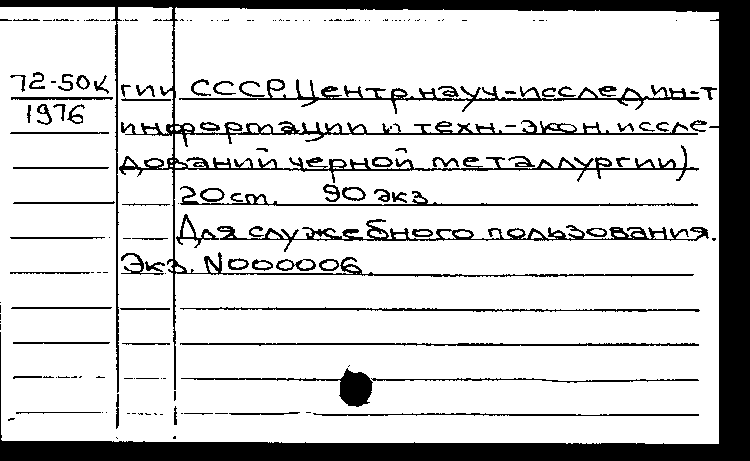 72-50к
1976
гии СССР. Центр. науч.-исслед. ин-т
информации и техн.-экон. иссле-
дований черной металлургии)
20 ст. 90 экз.
Для служебного пользования.
Экз. N000006.